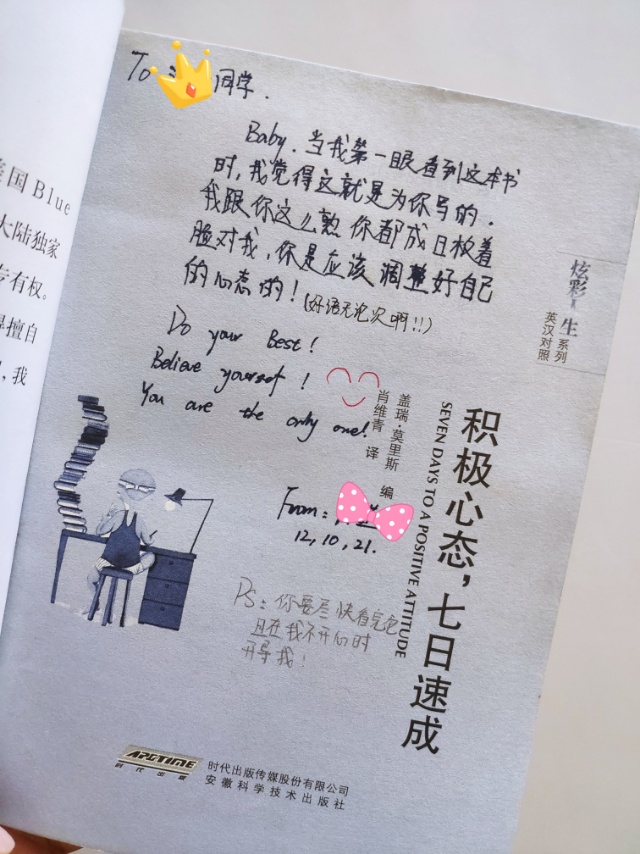 国 Blue
大陆独家
专有权。
得擅自
，我
To 同学.
Baby. 当我第一眼看到这本书
时,我觉得这就是为你写的.
我跟你这么熟 你都成日板着
脸对我,你是应该调整好自己
的心态的!(好语无论次啊!!)
Do your Best!
Believe yourself!
You are the only one!
From:
12,10,21.
Ps: 你要尽快看完它
且在我不开心时
开导我!
炫彩人生
系列
英汉对照
积极心态，七日速成
SEVEN DAYS TO A POSITIVE ATTITUDE
盖瑞·莫里斯 编
肖维青 译
APGTIME
时代出版
时代出版传媒股份有限公司
安徽科学技术出版社